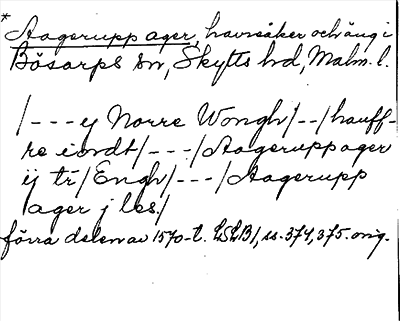 *Aagerupp ager, havreåker och äng i
Bösarps sn, Skytts hd, Malm. l.
/---ej Norre Wongh/--/hauff-
re eiordt/---/Aagerupp ager
ij tr/Engh/---/Aagerupp
ager j les./
förra delen av 1570-t. LSLB1, ss. 374, 375. orig.